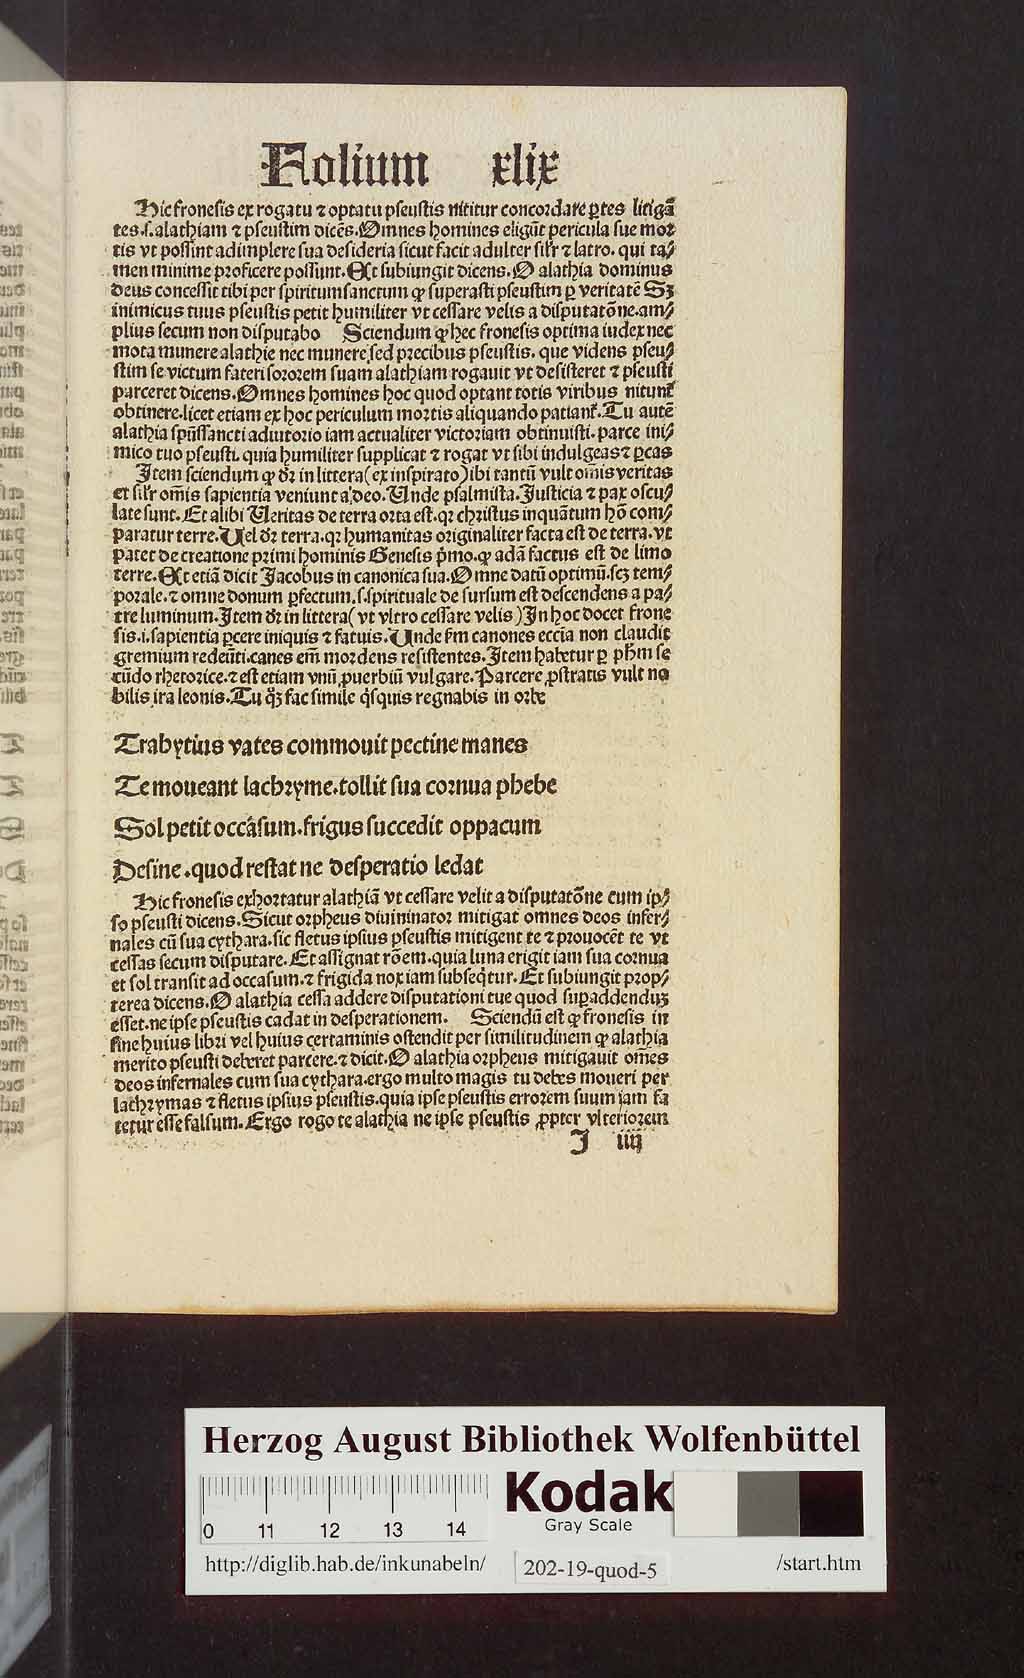 Folium xlix
Hic fronesis ex rogatu ⁊ optatu pseustis nititur concordare ꝑtes litigā
tes.s.alathiam ⁊ pseustim dicēs.Omnes homines eligūt pericula sue mor
tis vt possint adimplere sua desideria sicut facit adulter silr ⁊ latro. qui ta⸗
men minime proficere possunt.Et subiungit dicens.O alathia dominus
deus concessit tibi per spiritumsanctum ꝙ superasti pseustim ꝑ veritatē Sꝫ
inimicus tuus pseustis petit humiliter vt cessare velis a disputatōne.am⸗
plius secum non disputabo Sciendum ꝙ hec fronesis optima iudex nec
mota munere alathie nec munere sed precibus pseustis. que videns pseu⸗
stim se victum fateri sororem suam alathiam rogauit vt desisteret ⁊ pseusti
parceret dicens.Omnes homines hoc quod optant totis viribus nitunt᷑
obtinere.licet etiam ex hoc periculum mortis aliquando patiant᷑.Tu autē
alathia spūssancti adiutorio iam actualiter victoriam obtinuisti.parce ini⸗
mico tuo pseusti.quia humiliter supplicat ⁊ rogat vt sibi indulgeas ⁊ ꝑcas
Item sciendum ꝙ dr̄ in littera(ex inspirato)ibi tantū vult om̄is veritas
et silr om̄is sapientia veniunt a deo.Unde psalmista.Justicia ⁊ pax oscu⸗
late sunt.Et alibi Veritas de terra orta est.qr christus inquātum hō com⸗
paratur terre.Vel dr̄ terra.qr humanitas originaliter facta est de terra.vt
patet de creatione primi hominis Genesis p̄mo.ꝙ adā factus est de limo
terre.Et etiā dicit Jacobus in canonica sua.Omne datū optimū.scꝫ tem⸗
porale.⁊ omne donum ꝑfectum.s.spirituale de sursum est descendens a pa⸗
tre luminum.Item dr̄ in littera(vt vltro cessare velis)In hoc docet frone
sis.i.sapientia ꝑcere iniquis ⁊ fatuis.Unde ẜm canones eccīa non claudit
gremium redeūti.canes em̄ mordens resistentes.Item habetur ꝑ pħm se
cūdo rhetorice.⁊ est etiam vnū ꝓuerbiū vulgare.Parcere ꝓstratis vult no
bilis ira leonis.Tu qꝫ fac simile q̇squis regnabis in orbe
Trabytius vates commouit pectine manes
Te moueant lachryme.tollit sua cornua phebe
Sol petit occasum.frigus succedit oppacum
Desine.quod restat ne desperatio ledat
Hic fronesis exhortatur alathiā vt cessare velit a disputatōne cum ip⸗
so pseusti dicens.Sicut orpheus diuininator mitigat omnes deos infer⸗
nales cū sua cythara.sic fletus ipsius pseustis mitigent te ⁊ prouocēt te vt
cessas secum disputare.Et assignat rōem.quia luna erigit iam sua cornua
et sol transit ad occasum.⁊ frigida nox iam subseq̄tur.Et subiungit prop⸗
terea dicens.O alathia cessa addere disputationi tue quod suꝑaddenduꝫ
esset.ne ipse pseustis cadat in desperationem. Sciendū est ꝙ fronesis in
fine huius libri vel huius certaminis ostendit per similitudinem ꝙ alathia
merito pseusti deberet parcere.⁊ dicit.O alathia orpheus mitigauit om̄es
deos infernales cum sua cythara.ergo multo magis tu debes moueri per
lachrymas ⁊ fletus ipsius pseustis.quia ipse pseustis errorem suum iam fa
tetur esse falsum.Ergo rogo te alathia ne ipse pseustis ꝓpter vlteriorem
J iiij
Herzog August Bibliothek Wolfenbüttel
0 11 12 13 14
Kodak
Gray Scale
http://diglib.hab.de/inkunabeln/ 202-19-quod-5 /start.htm